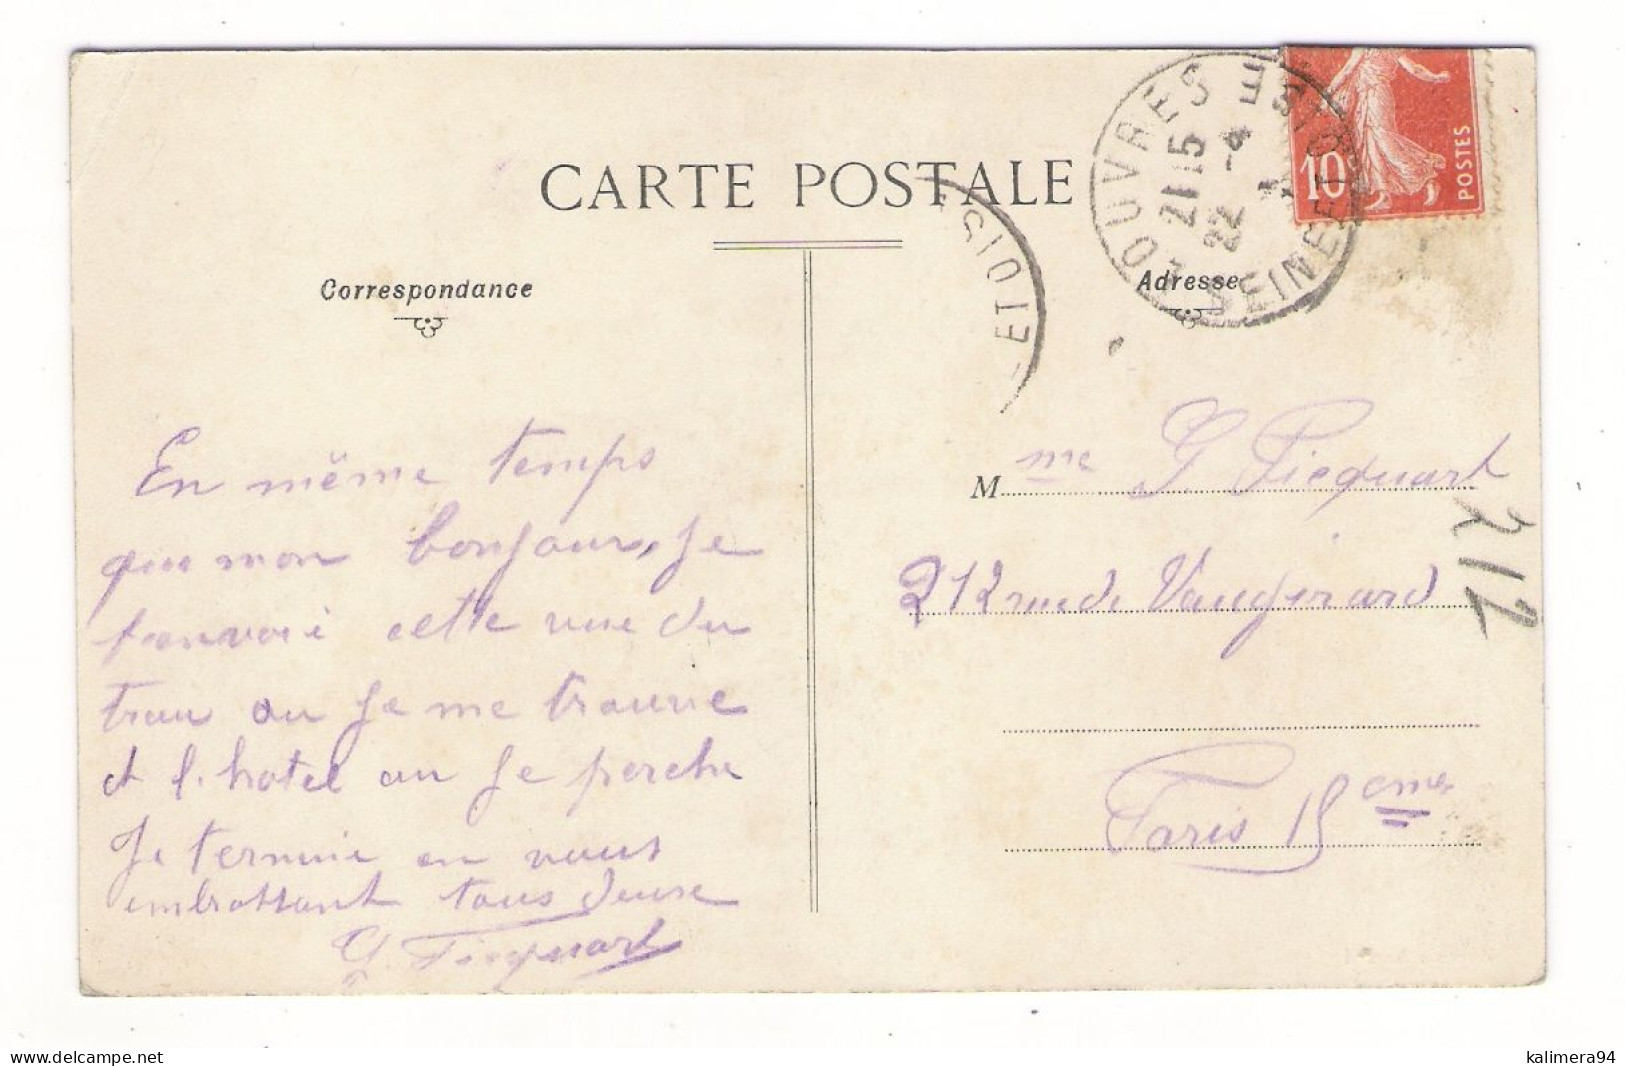 CARTE POSTALE
Correspondance
Adresse
LOUVRES
SEINE-ET-OISE
21 15
22 -4
OISE
10
POSTES
En même temps
que mon bonjour, je
t'envoie cette vue du
trou ou je me trouve
et l'hotel ou je perche
Je termine en vous
embrassant tous deux
G. Picquart
Mme G. Picquart
212 rue de Vaugirard
Paris 15eme
212
www.delcampe.net
kalimera94